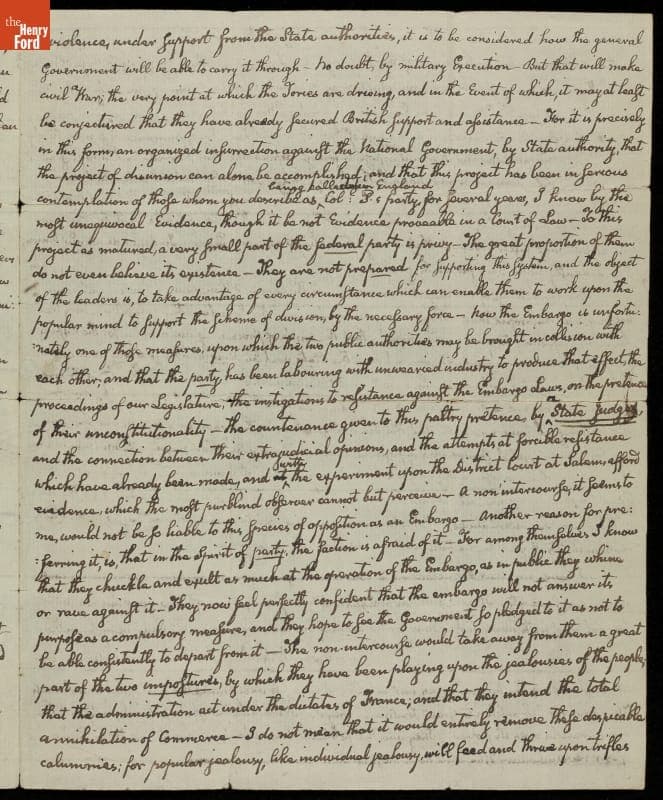 the
Henry
Ford
violence, under support from the State authorities, it is to be considered how the general
Government will be able to carry it through — No doubt, by military Execution — But that will make
civil War; the very point at which the Tories are driving, and in the Event of which, it may at least
be conjectured that they have already secured British support and assistance — For it is precisely
in this form, an organized insurrection against the National Government, by State authority, that
the project of disunion can alone be accomplished; and that this project has been in serious
England
contemplation of those whom you describe as Col: P.s party, for several years, I know by the
most unequivocal Evidence, though it be not Evidence proveable in a Court of Law — To this
project as matured, a very small part of the federal party is privy — The great proportion of them
do not even believe its existence — They are not prepared for supporting this System, and the object
of the leaders is, to take advantage of every circumstance which can enable them to work upon the
popular mind to support the scheme of division, by the necessary force — Now the Embargo is unfortu:
:nately one of those measures, upon which the two public authorities may be brought in collision with
each other; and that the party, has been labouring with unwearied industry to produce that effect, the
proceedings of our Legislature, the instigations to resistance against the Embargo Laws, on the pretence
of their unconstitutionality — the countenance given to this paltry pretence, by a State Judge,
and the connection between their extrajudicial opinions, and the attempts at forcible resistance
which have already been made, and the experiment upon the District Court at Salem, afford
evidence, which the most purblind observer cannot but perceive — A non intercourse, it seems to
me, would not be so liable to this species of opposition as an Embargo — Another reason for pre:
:ferring it, is, that in the Spirit of party, the faction is afraid of it — For among themselves I know
that they chuckle and exult as much at the operation of the Embargo, as in public they whine
or rave against it — They now feel perfectly confident that the embargo will not answer its
purpose as a compulsory measure, and they hope to see the Government so pledged to it as not to
be able consistently to depart from it — The non-intercourse would take away from them a great
part of the two impostures, by which they have been playing upon the jealousies of the people;
that the administration act under the dictates of France; and that they intend the total
annihilation of Commerce — I do not mean that it would entirely remove these despicable
calumnies; for popular jealousy, like individual jealousy, will feed and thrive upon trifles